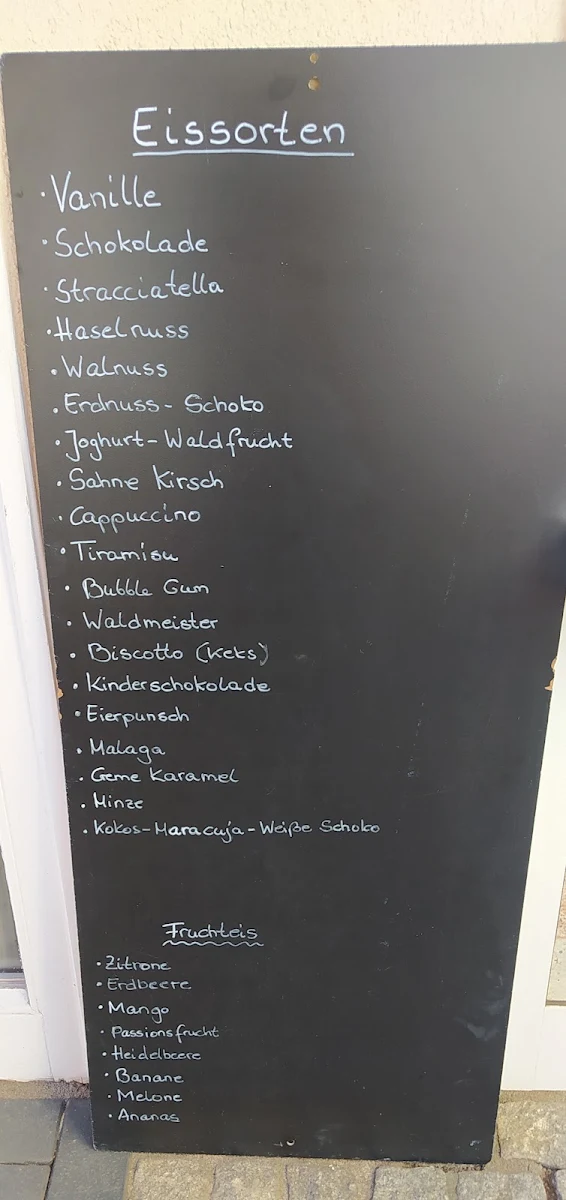 Eissorten
· Vanille
· Schokolade
· Stracciatella
· Haselnuss
· Walnuss
· Erdnuss- Schoko
· Joghurt-Waldfrucht
· Sahne Kirsch
· Cappuccino
· Tiramisu
· Bubble Gum
· Waldmeister
· Biscotto (Keks)
· Kinderschokolade
· Eierpunsch
· Malaga
· Geme Karamel
· Minze
· Kokos-Maracuja-Weiße Schoko
Fruchteis
· Zitrone
· Erdbeere
· Mango
· Passionsfrucht
· Heidelbeere
· Banane
· Melone
· Ananas